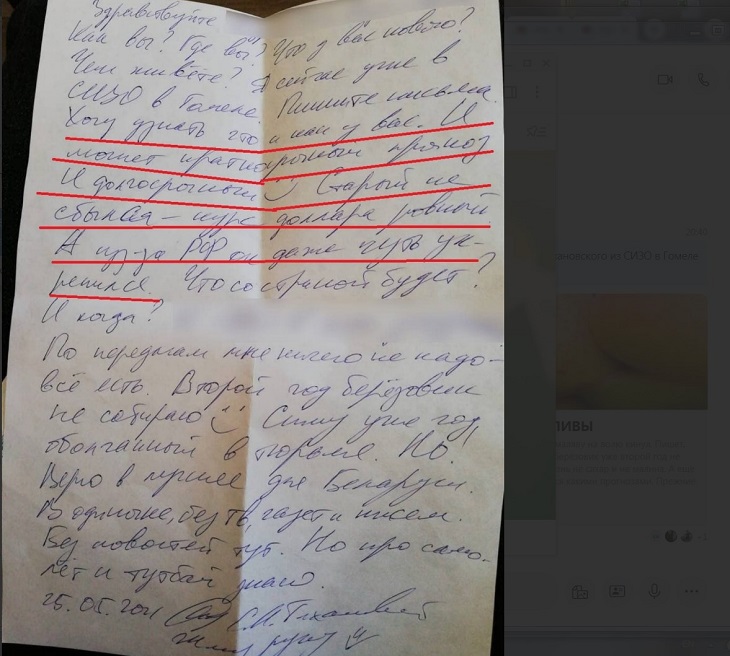 Здравствуйте
Как вы? Где вы? Что у вас нового?
Чем живёте? Я сейчас уже в
СИЗО в Гомеле. Пишите письма.
Хочу узнать что и как у вас. И
может краткосрочный прогноз
И долгосрочный Старый не
сбылся – курс доллара ровный.
А из-за РФ он даже чуть ук-
репился. Что со страной будет?
И когда?
По передачам мне ничего не надо –
всё есть. Второй год берёзовик
не собираю Сижу уже год,
оболганный в тюрьме. Но.
Верю в лучшее для Беларуси.
В одиночке, без тв, газет и писем.
Без новостей тут. Но про само-
лёт и тутбай знаю.
25.05.2021
жму руку
ановского из СИЗО в Гомеле
ЛИВЫ